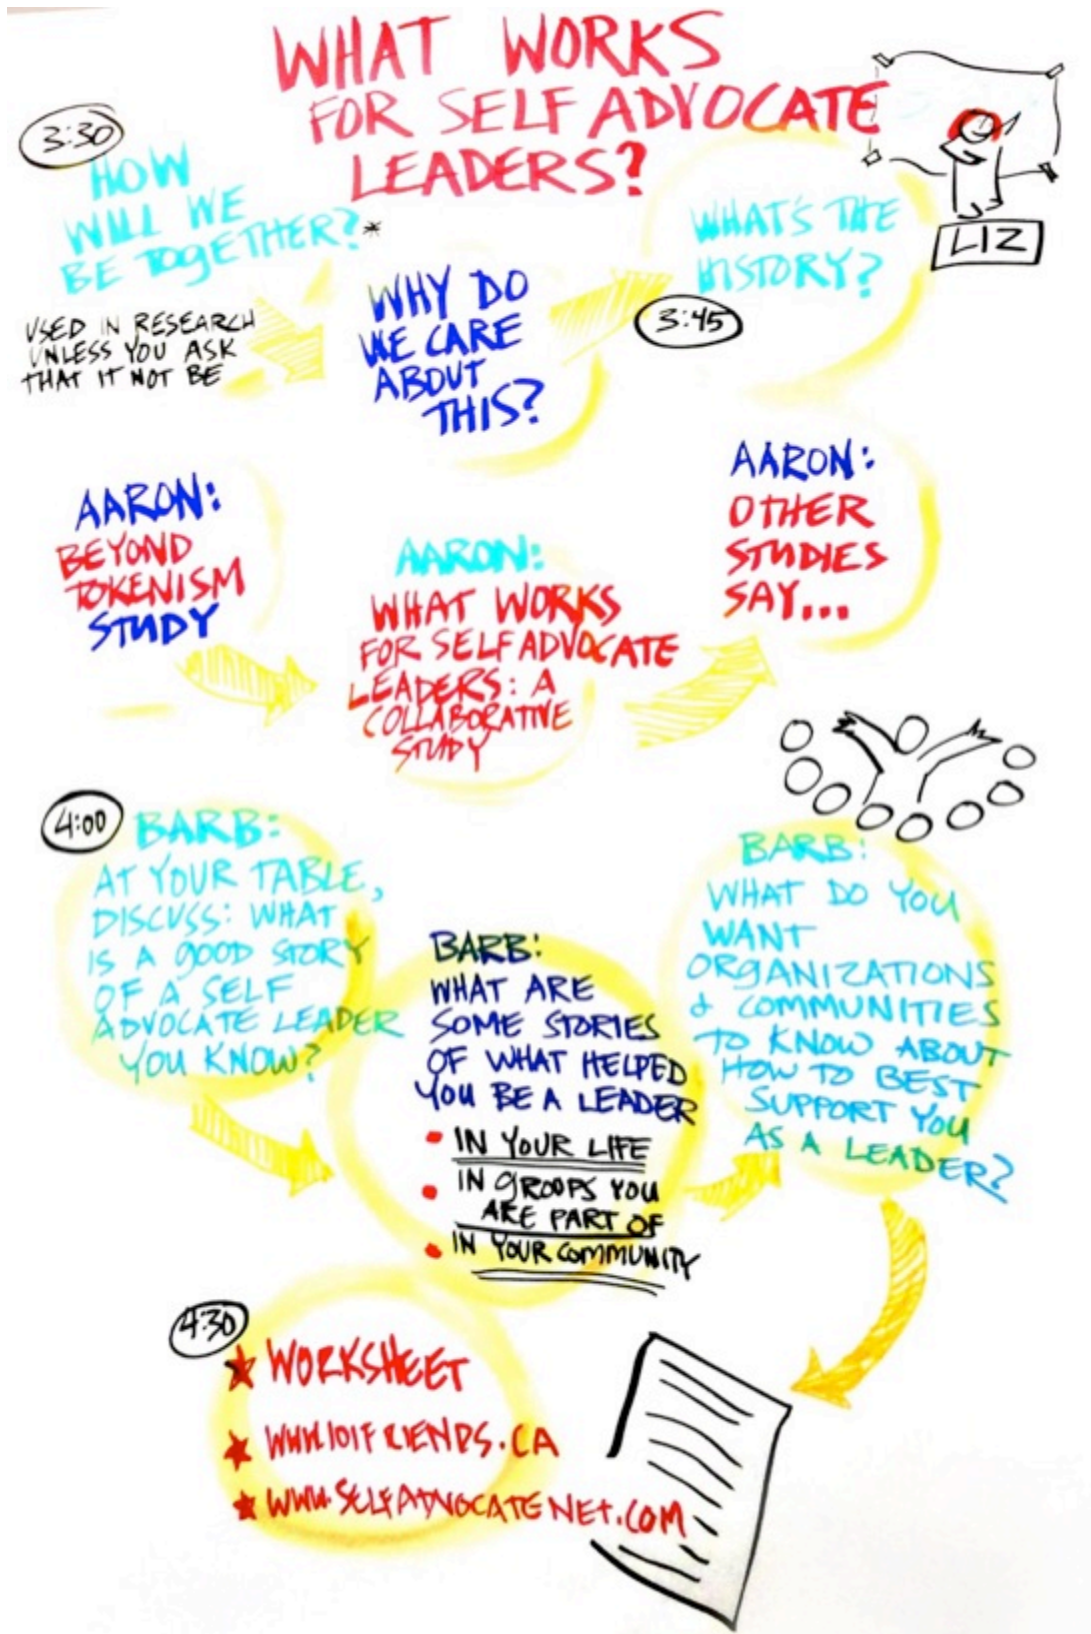 WHAT WORKS
FOR SELF ADVOCATE
LEADERS?
3:30
HOW
WILL WE
BE TOGETHER?*
USED IN RESEARCH
UNLESS YOU ASK
THAT IT NOT BE
WHY DO
WE CARE
ABOUT
THIS?
WHAT'S THE
HISTORY?
3:45
LIZ
AARON:
BEYOND
TOKENISM
STUDY
AARON:
WHAT WORKS
FOR SELF ADVOCATE
LEADERS: A
COLLABORATIVE
STUDY
AARON:
OTHER
STUDIES
SAY...
4:00
BARB:
AT YOUR TABLE,
DISCUSS: WHAT
IS A GOOD STORY
OF A SELF
ADVOCATE LEADER
YOU KNOW?
BARB:
WHAT ARE
SOME STORIES
OF WHAT HELPED
YOU BE A LEADER
• IN YOUR LIFE
• IN GROOPS YOU
ARE PART OF
• IN YOUR COMMUNITY
BARB:
WHAT DO YOU
WANT
ORGANIZATIONS
& COMMUNITIES
TO KNOW ABOUT
HOW TO BEST
SUPPORT YOU
AS A LEADER?
4:30
★ WORKSHEET
★ WWW.101FRIENDS.CA
★ WWW.SELFADVOCATENET.COM